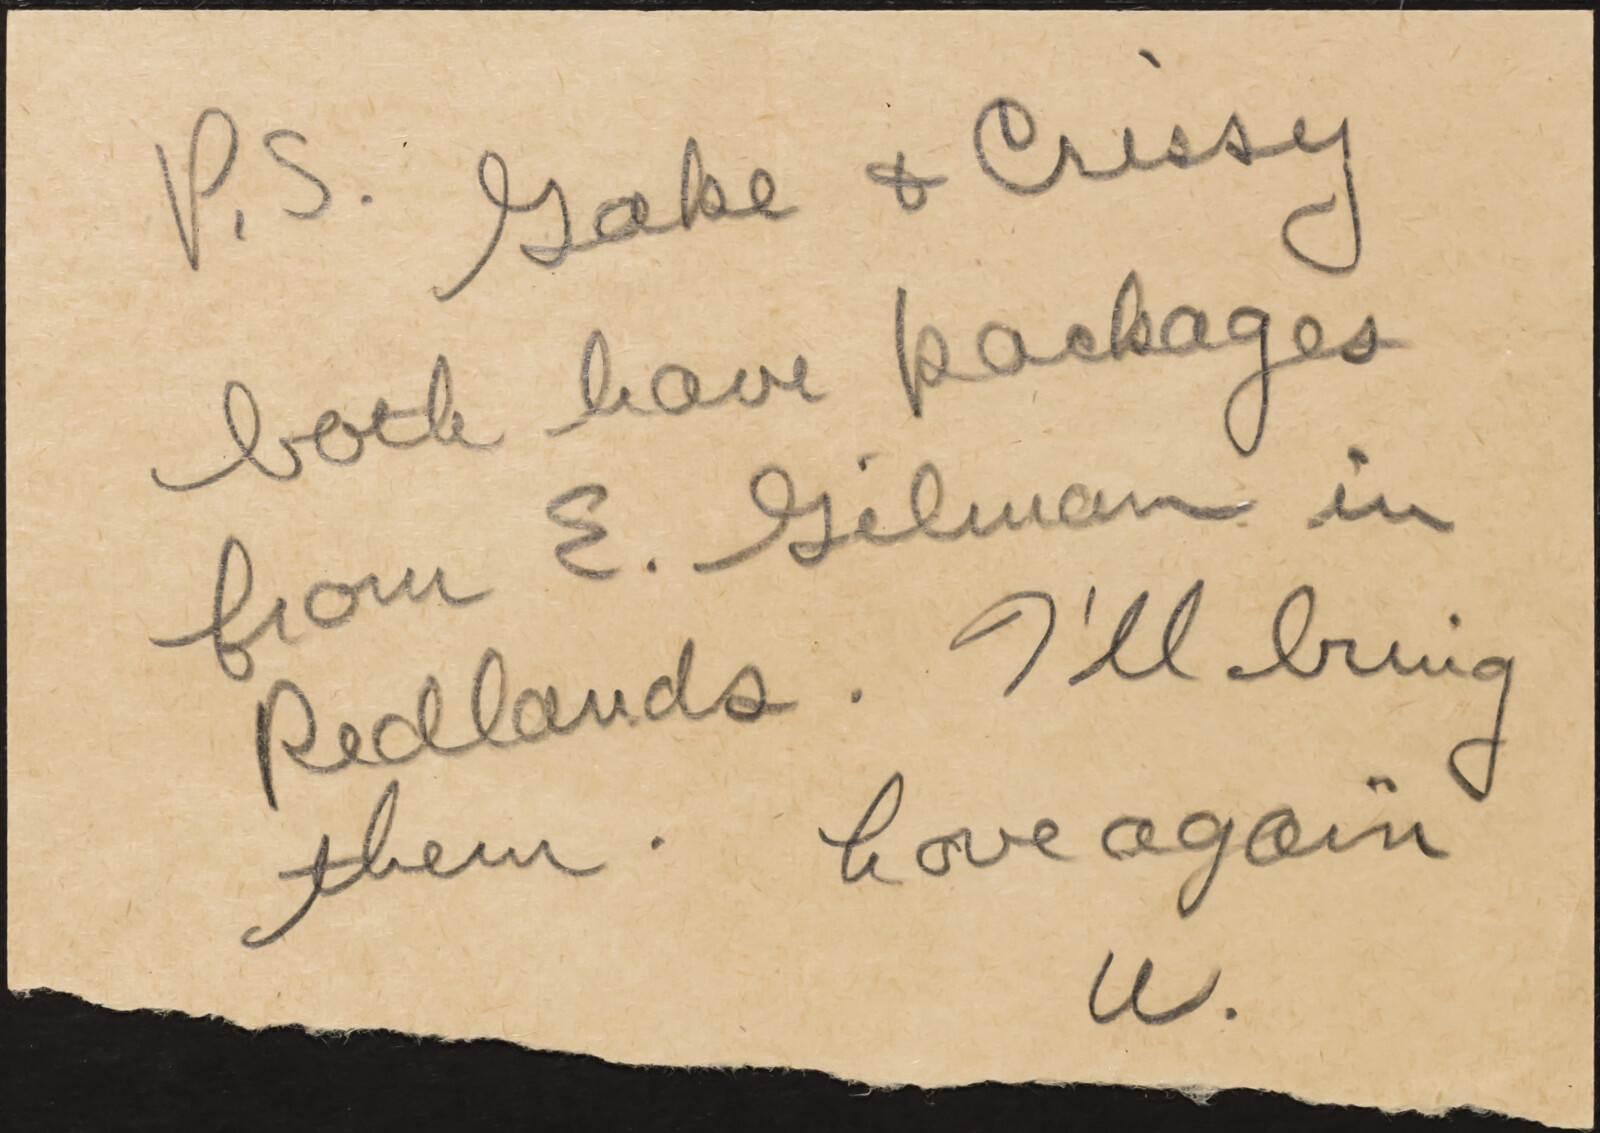 P.S. Gabe & Crissy
both have packages
from E. Gilman in
Redlands. I'll bring
them. Love again
W.